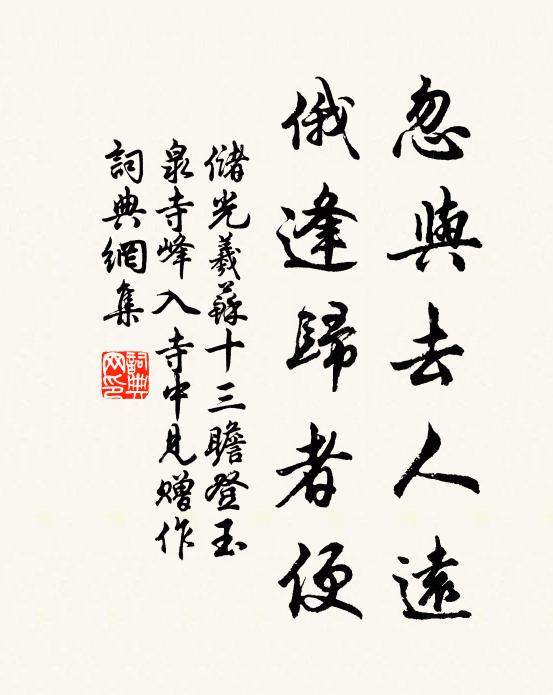 忽與去人遠
俄逢歸者便
儲光羲蘇十三瞻登玉
泉寺峰入寺中見贈作
詞典網集
詞典網印